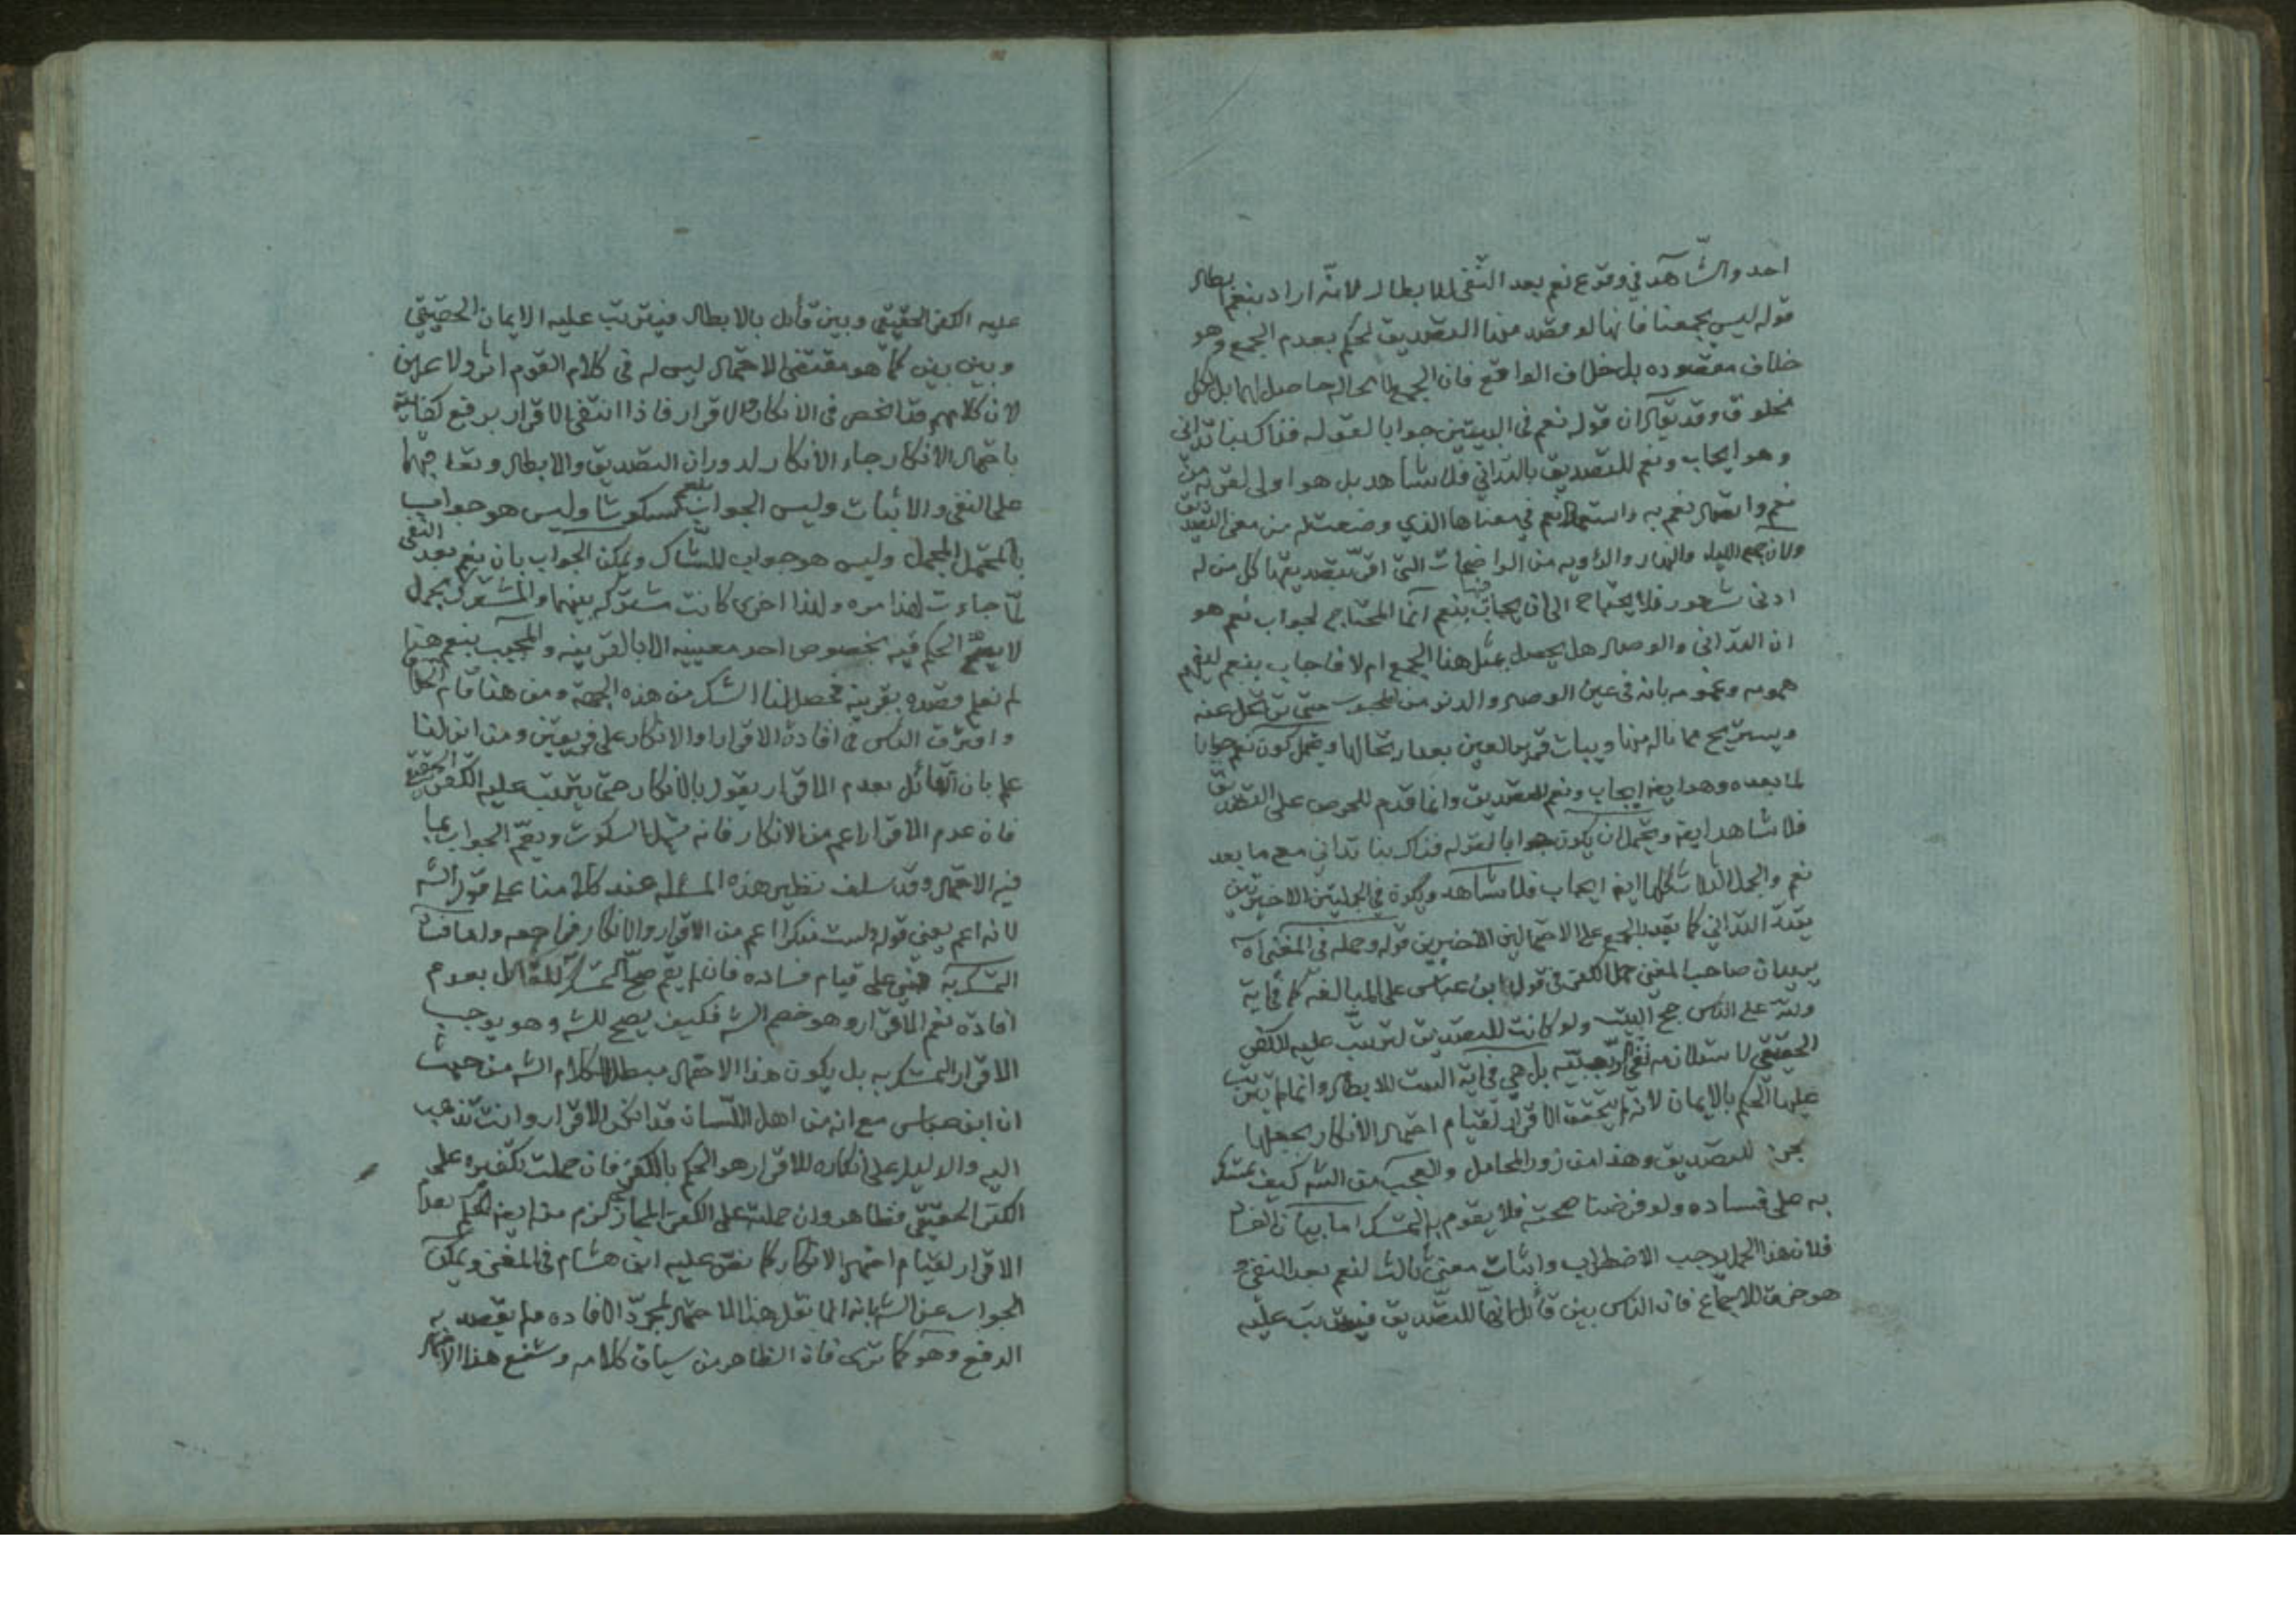 احد والشاهد في وقوع نعم بعد النفى للابطال لانه اراد بنعم ابطال
قوله ليس يجمعنا فانها لو قصد منها التصديق لحكم بعدم الجمع وهو
خلاف مقصوده بل خلاف الواقع فان الجمع لا محاله حاصل لهما بل لكل
مخلوق وقد يقال ان قوله نعم في البيتين جوابا لقوله فذاك بنا تدانى
وهو ايجاب ونعم للتصديق بالتداني فلا شاهد بل هو اولى
نعم واتصال نعم به واستعمال نعم في معناها الذي وضعت له من معنى التصديق
ولان جمع الليل والنهار والرؤيه من الواضحات التى اقر بتصديقها كل من له
ادنى شعور فلا يحتاج الى ان يجاب فيها بنعم انما المحتاج لجواب نعم هو
ان التدانى والوصال هل يحصل بمثل هذا الجمع ام لا فاجاب بنعم
همومه وغمومه بانه في عين الوصال والدنو من المحبوب حتى عنه
ويستريح مما ناله منها ويبات قرير العين بعد ارتحالها ويحتمل كون نعم جوابا
لما بعده وهو ايضا ايجاب ونعم للتصديق وانما قدم للحرص على التصديق
فلا شاهد ايضا ويحتمل ان يكون جوابا لقوله فذاك بنا تداني مع ما بعد
نعم والجمل الثلاث كلها ايضا ايجاب فلا شاهد ويكون في الجملتين الاخيرتين
يقيد التداني كما يقيد الجمع على الاحتمالين الاخيرين قوله وحمله في المغنى آه
يريد ان صاحب المغنى حمل الكفر في قول ابن عباس على المبالغه كما في آية
ولله على الناس حج البيت ولو كانت للتصديق لترتب عليه الكفر
الحقيقى لاستلزامه نفى الربوبيته بل هي في آية الست للابطال وانما لم يترتب
عليها الحكم بالايمان لانه لم يتحقق الاقرار لقيام احتمال الانكار بجعلها
للتصديق وهذا من زور المحامل والعجب من الشه كيف تمسك
به على فساده ولو فرضنا صحته فلا يقوم به التمسك اما بيان الفساد
فلان هذا الحمل يوجب الاضطراب واثبات معنى ثالث لنعم بعد النفى و
هو خرق للاجماع فان الناس بين قائل بانها للتصديق فيترتب عليه
عليه الكفر الحقيقي وبين قائل بالابطال فيترتب عليه الايمان الحقيقي
وبين بين كما هو مقتضى الاحتمال ليس له في كلام القوم اثر ولا عين
لان كلامهم قد انحصر في الانكار والاقرار فاذا انتفى الاقرار برفع
باحتمال الانكار جاء الانكار لدوران التصديق والابطال
على النفى والاثبات وليس الجواب بنعم سكوتا وليس هو جواب
بالمحتمل المجمل وليس هو جواب للشاك ويمكن الجواب بان نعم بعد النفى
لمّا جاءت لهذا مره ولهذا اخرى كانت مشتركه بينهما والمشترك مجمل
لا يصح الحكم فيه بخصوص احد معنييه الا بالقرينه والمجيب بنعم هنا
لم نعلم قصده بقرينه فحصل لنا الشك من هذه الجهة ومن هنا قام
وافترق الناس في افادة الاقرار او الانكار على فريقين ومن اين لنا
علم بان القائل بعدم الاقرار يقول بالانكار حتى يترتب عليه الكفر الحقيقي
فان عدم الاقرار اعم من الانكار فانه يشمل السكوت ويعم الجواب بما
فيه الاحتمال وقد سلف نظير هذه المسئله عند كلامنا على قول الشه
لانه اعم يعنى قوله لست منكرا اعم من الاقرار والانكار فراجعه
التمسك به مبني على قيام فساده فانه لم يقم صح التمسك للقائل بعدم
افادة نعم الاقرار وهو خصم الشه فكيف يصح للشه وهو يوجب
الاقرار التمسك به بل يكون هذا الاحتمال مبطلا لكلام الشه من حيث
ان ابن عباس مع انه من اهل اللسان قد انكر الاقرار وانت تذهب
اليه والدليل على انكاره للاقرار هو الحكم بالكفر فان حملت تكفيره على
الكفر الحقيقي فظاهر وان حملته على الكفر المجازي لزم منه ايضا الحكم بعدم
الاقرار لقيام احتمال الانكار كما نص عليه ابن هشام في المغنى ويمكن
الجواب عن الشه بانه انما نقل هذا الاحتمال لمجرد الافاده ولم يقصد به
الدفع وهو كما ترى فان الظاهر من سياق كلامه وشنع هذا الاحتمال